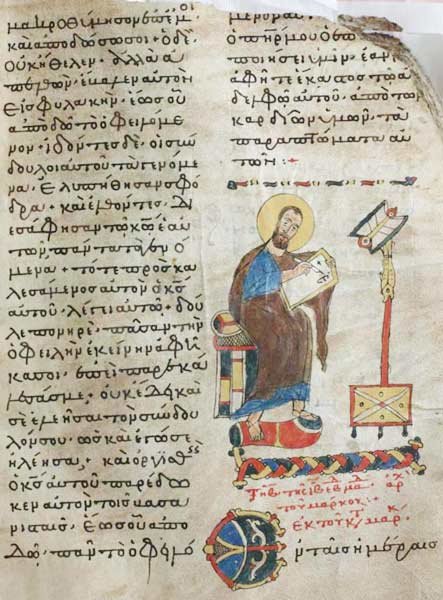 μακροθύμησον ἐπ' ἐμ
καὶ ἀποδώσω σοι· ὁ δὲ
οὐκ ἤθελεν· ἀλλὰ ἀ
πελθὼν, ἔβαλεν αὐτὸν
εἰς φυλακὴν, ἕως οὗ
ἀποδῶ τὸ ὀφειλόμε
νον· ἰδόντες δὲ, οἱ σύν
δουλοι αὐτοῦ τὰ γενόμε
να, ἐλυπήθησαν σφό
δρα· καὶ ἐλθόντες, δι
εσάφησαν τῷ κω ἑαυ
τῶν πάντα τὰ γενό
μενα· τότε προσκα
λεσάμενος αὐτὸν ὁ κς
αὐτοῦ· λέγει αὐτῷ· δοῦ
λε πονηρέ· πᾶσαν τὴν
ὀφειλὴν ἐκείνην ἀφῆ
κά σοι, ἐπεὶ παρεκά
λεσάς με· οὐκ ἔδει καὶ
σὲ ἐλεῆσαι τὸν σύνδου
λόν σου, ὡς καὶ ἐγώ σε
ἠλέησα, καὶ ὀργισθεὶς
ὁ κς αὐτοῦ παρέδω
κεν αὐτὸν τοῖς βασα
νισταῖς· ἕως οὗ ἀπο
δῷ· πᾶν τὸ ὀφειλό
μενον
ὁ πηρ μου ὁ
ποιήσει ὑμῖν, ἐὰν μ
ἀφῆτε ἕκαστος τῷ ἀ
δελφῷ αὐτοῦ, ἀπὸ τῶν
καρδιῶν ὑμῶν, τὰ
παραπτώματα αὐ
τῶν :+
τοῦ μάρκου :
ἐκ τοῦ κτ μάρκ
Ἐν ταῖς ἡμέραις